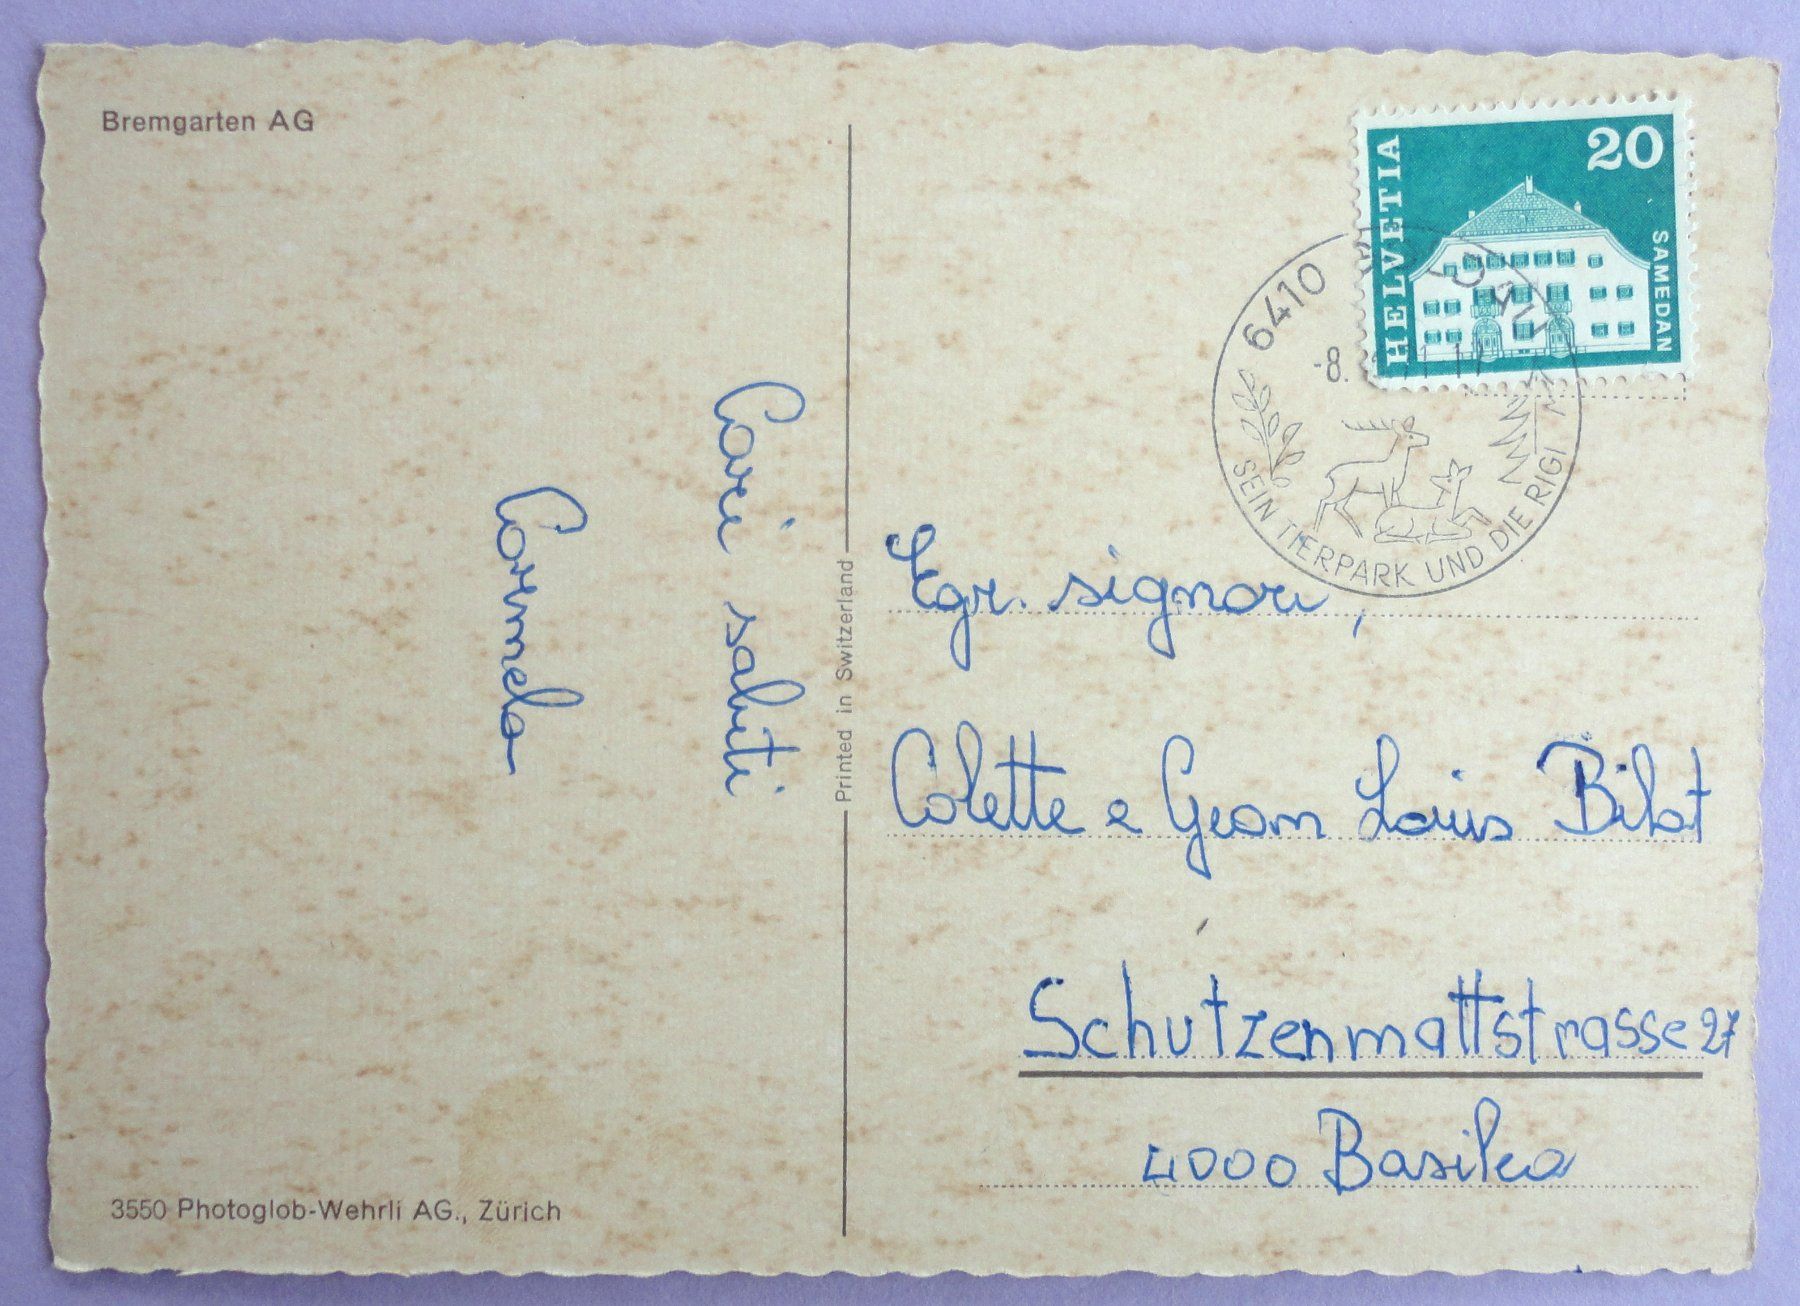 Bremgarten AG
Cari saluti
Carmela
3550 Photoglob-Wehrli AG., Zürich
Printed in Switzerland
HELVETIA
20
SAMEDAN
6410
-8.
SEIN TIERPARK UND DIE RIGI
Egr. signori,
Colette e Gean Louis Bilat
Schutzenmattstrasse 27
4000 Basilea